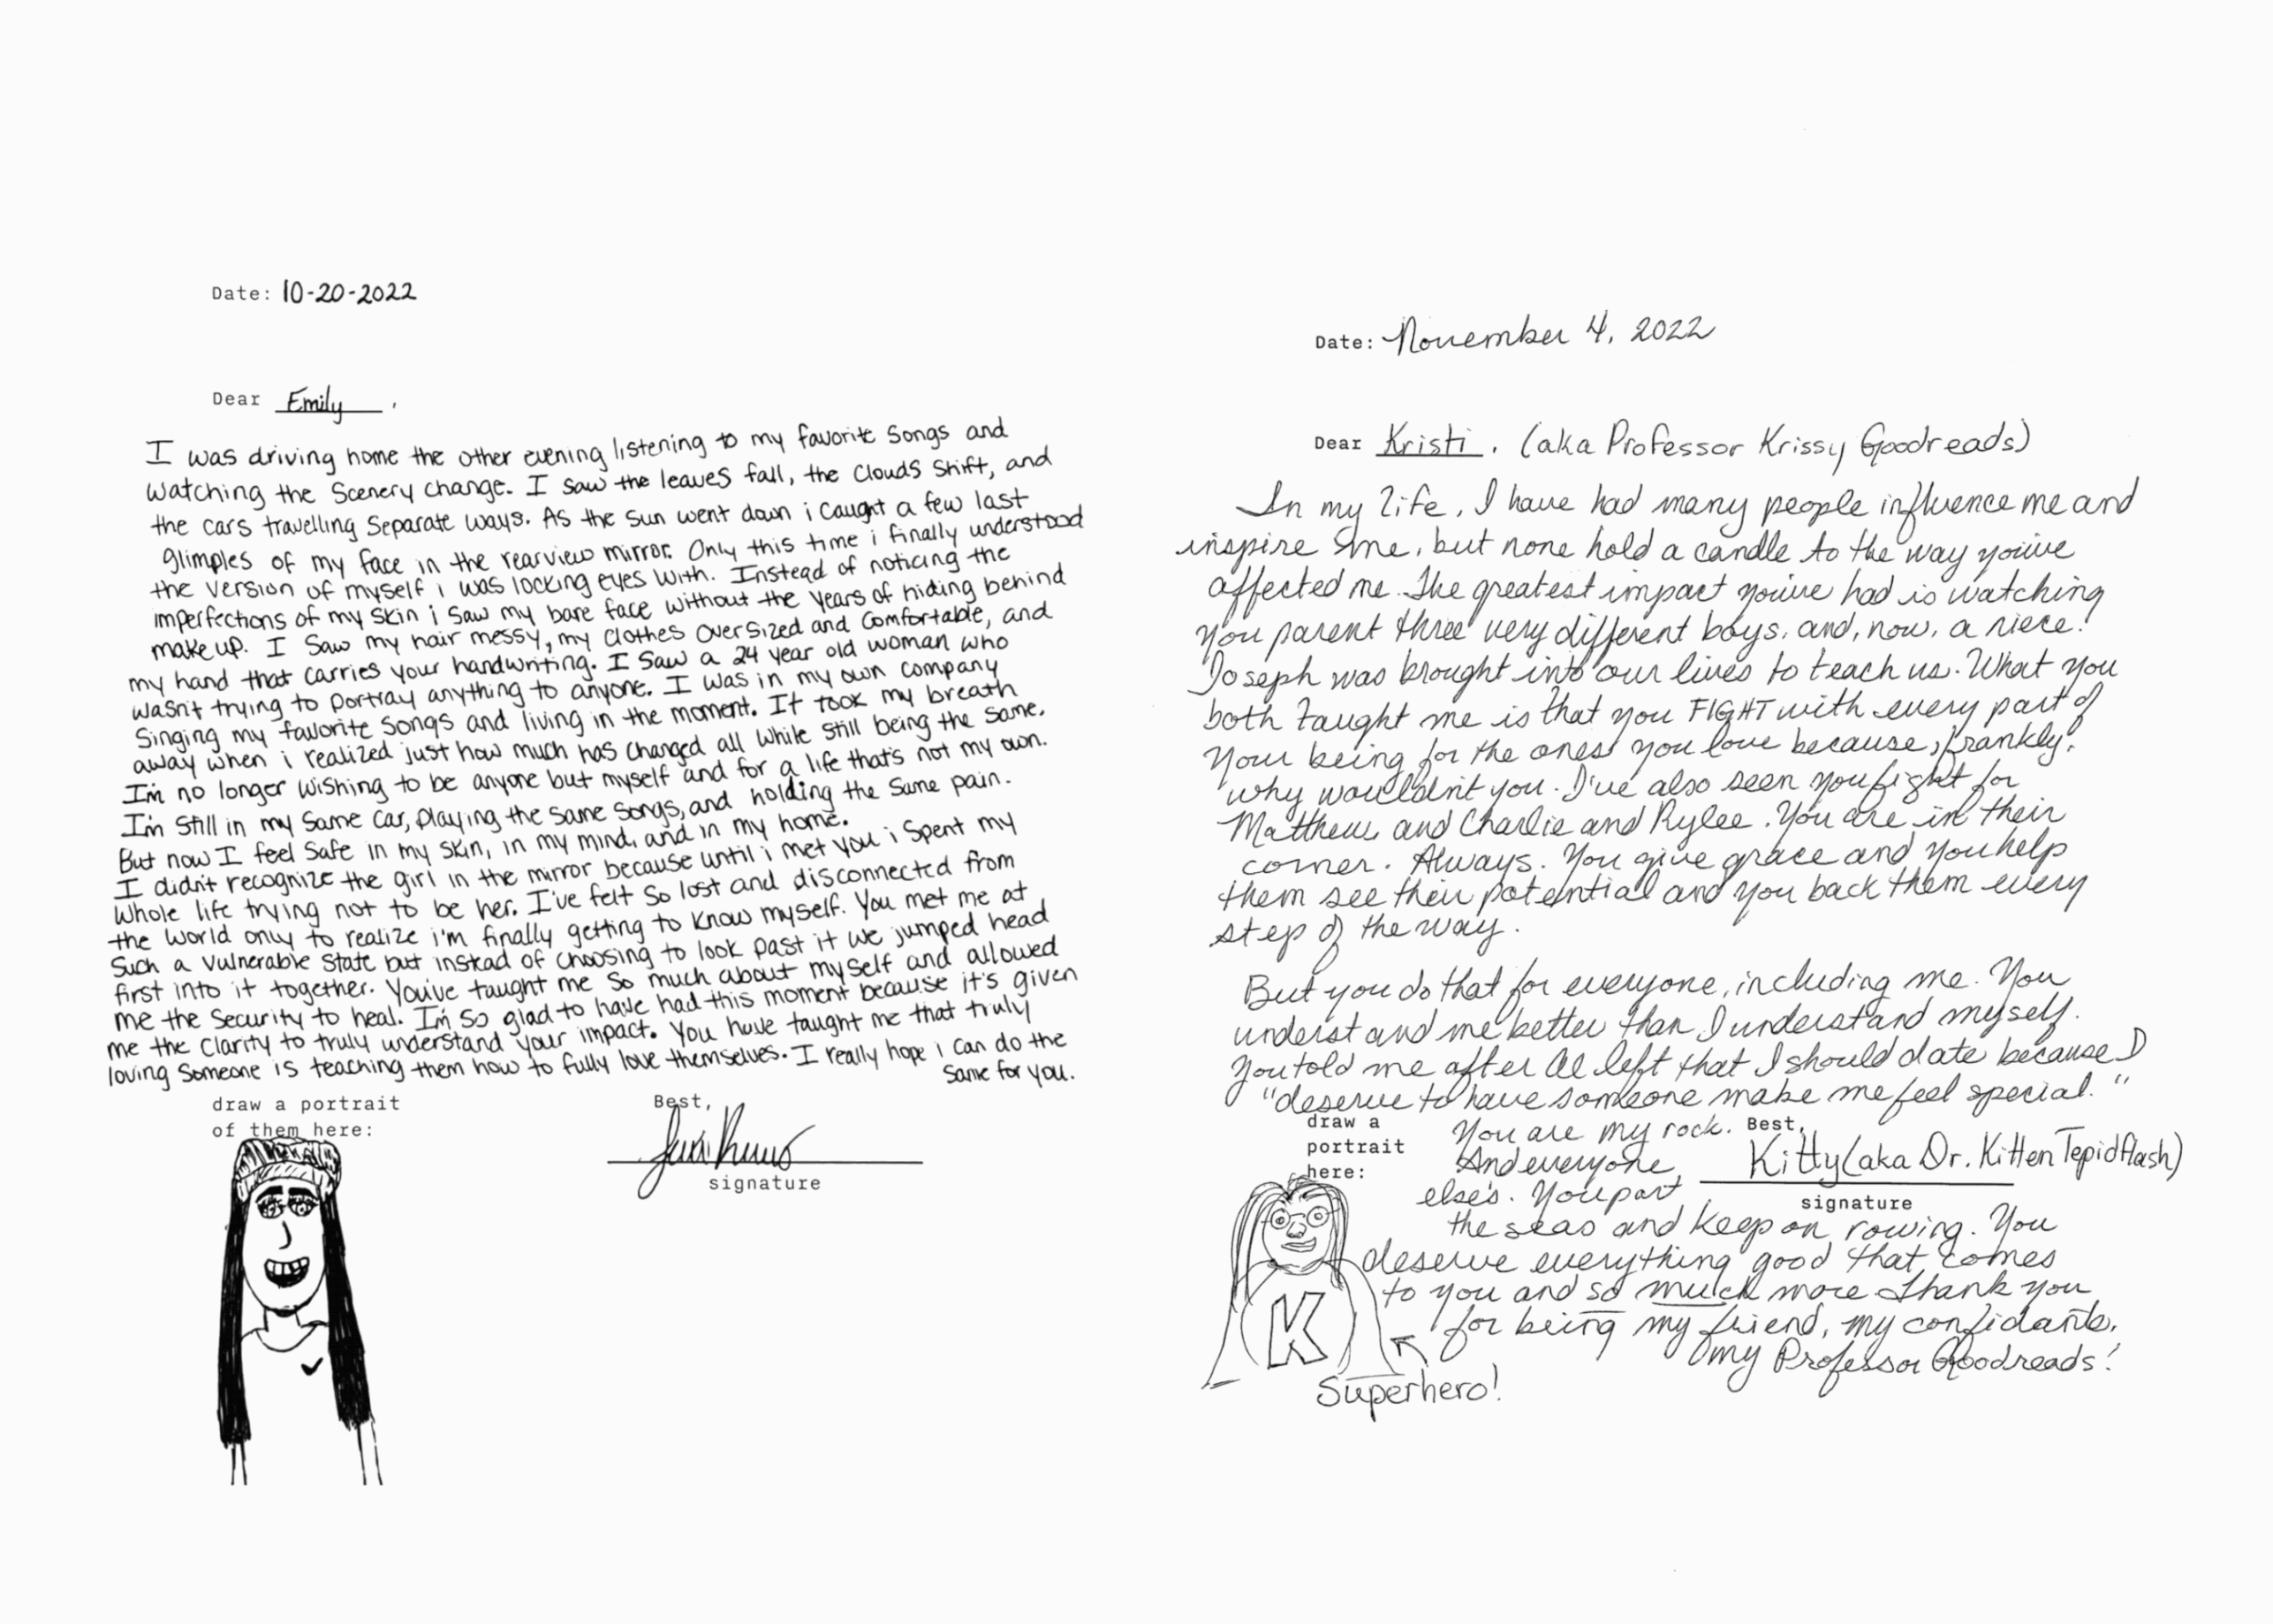 Date: 10-20-2022
Dear Emily ,
I was driving home the other evening listening to my favorite songs and
watching the scenery change. I saw the leaves fall, the clouds shift, and
the cars travelling separate ways. As the sun went down i caught a few last
glimples of my face in the rearview mirror. Only this time i finally understood
the version of myself i was locking eyes with. Instead of noticing the
imperfections of my skin i saw my bare face without the years of hiding behind
makeup. I saw my hair messy, my clothes oversized and comfortable, and
my hand that carries your handwriting. I saw a 24 year old woman who
wasn't trying to portray anything to anyone. I was in my own company
singing my favorite songs and living in the moment. It took my breath
away when i realized just how much has changed all while still being the same.
I'm no longer wishing to be anyone but myself and for a life that's not my own.
I'm still in my same car, playing the same songs, and holding the same pain.
But now I feel safe in my skin, in my mind, and in my home.
I didn't recognize the girl in the mirror because until i met you i spent my
whole life trying not to be her. I've felt so lost and disconnected from
the world only to realize i'm finally getting to know myself. You met me at
such a vulnerable state but instead of choosing to look past it we jumped head
first into it together. You've taught me so much about myself and allowed
me the security to heal. I'm so glad to have had this moment because it's given
me the clarity to truly understand your impact. You have taught me that truly
loving someone is teaching them how to fully love themselves. I really hope i can do the
same for you.
draw a portrait
of them here:
Best,
signature
Date: November 4, 2022
Dear Kristi . (aka Professor Krissy Goodreads)
In my life, I have had many people influence me and
inspire me, but none hold a candle to the way you've
affected me. The greatest impact you've had is watching
you parent three very different boys, and, now, a niece!
Joseph was brought into our lives to teach us. What you
both taught me is that you FIGHT with every part of
your being for the ones you love because, frankly,
why wouldn't you. I've also seen you fight for
Matthew and Charlie and Rylee. You are in their
corner. Always. You give grace and you help
them see their potential and you back them every
step of the way.
But you do that for everyone, including me. You
understand me better than I understand myself.
You told me after Al left that I should date because I
"deserve to have someone make me feel special."
draw a
portrait
here:
You are my rock.
And everyone
else's. You part
the seas and keep on rowing. You
deserve everything good that comes
to you and so much more. Thank you
for being my friend, my confidante,
my Professor Goodreads!
Best,
Kitty (aka Dr. Kitten Tepidflash)
signature
K
Superhero!